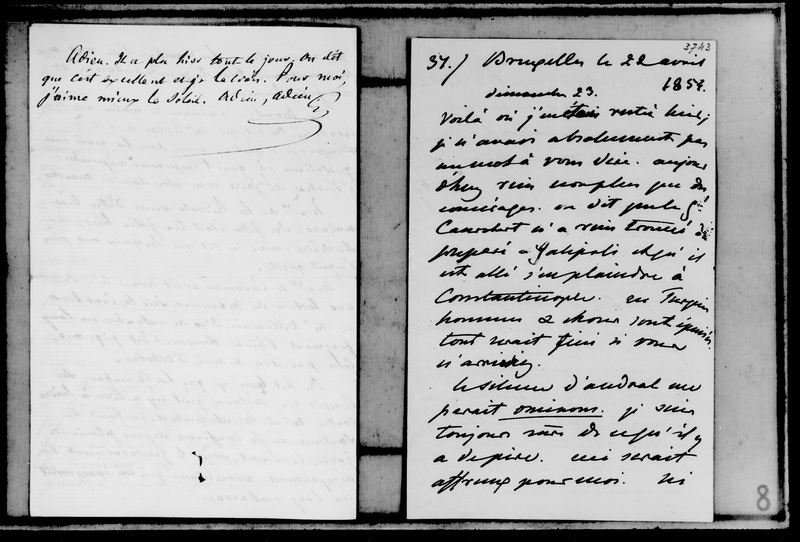 Adieu. Il a plu hier tout le jour. On dit
que c'est excellent et je le crois. Pour moi,
j'aime mieux le soleil. Adieu, adieu. G
3743
37./ Bruxelles le 22 avril
1854.
dimanche 23.
Voilà où j'en étais restée hier,
je n'avais absolument pas
un mot à vous dire. aujour
d'huy rien non plus que des
commérages. on dit que le Gal
Canrobert n'a rien trouvé de
preparé à Galipoli et qu'il
est allé s'en plaindre à
Constantinople. en Turquie
hommes & choses sont épuisés.
tout serait fini si vous
n'arriviez.
le silence d'andral me
parait ominous. je suis
toujours sûre de ce qu'il y
a de pire. ceci serait
affreux pour moi.
8